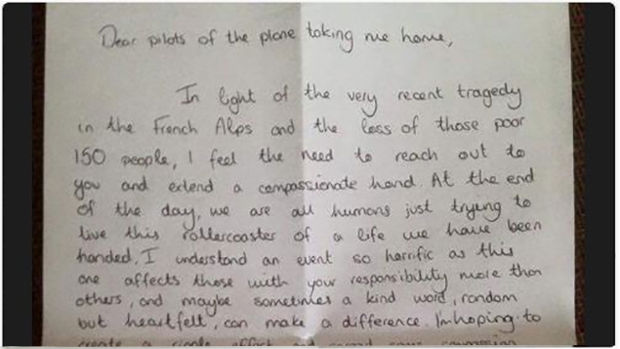 Dear pilots of the plane taking me home,
In light of the very recent tragedy
in the French Alps and the loss of those poor
150 people, I feel the need to reach out to
you and extend a compassionate hand. At the end
of the day, we are all humans just trying to
live this rollercoaster of a life we have been
handed. I understand an event so horrific as this
one affects those with your responsibility more than
others, and maybe sometimes a kind word, random
but heartfelt, can make a difference. I'm hoping to
create a ripple effect and